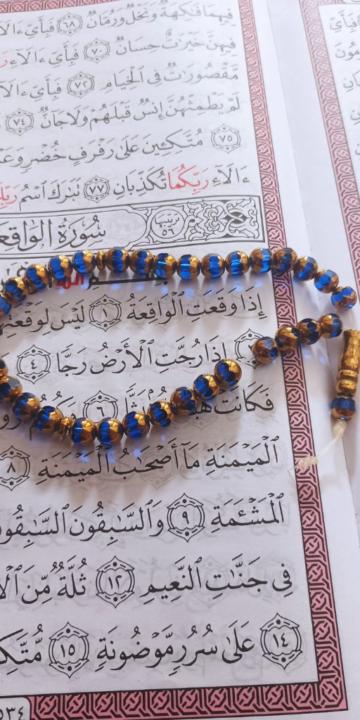 فِيهِمَا فَٰكِهَةٌ وَنَخْلٌ وَرُمَّانٌ ٦٨ فَبِأَيِّ ءَالَآءِ
فِيهِنَّ خَيْرَٰتٌ حِسَانٌ ٧٠ فَبِأَيِّ ءَالَآءِ
مَّقْصُورَٰتٌ فِى ٱلْخِيَامِ ٧٢ فَبِأَيِّ ءَالَآءِ
لَمْ يَطْمِثْهُنَّ إِنسٌ قَبْلَهُمْ وَلَا جَآنٌّ ٧٤
٧٥ مُتَّكِـِٔينَ عَلَىٰ رَفْرَفٍ خُضْرٍ
ءَالَآءِ رَبِّكُمَا تُكَذِّبَانِ ٧٧ تَبَٰرَكَ ٱسْمُ رَبِّكَ
سُورَةُ الوَاقِعَةِ
إِذَا وَقَعَتِ ٱلْوَاقِعَةُ ١ لَيْسَ لِوَقْعَتِهَا
إِذَا رُجَّتِ ٱلْأَرْضُ رَجًّا ٤
فَكَانَتْ ٦
ٱلْمَيْمَنَةِ مَآ أَصْحَٰبُ ٱلْمَيْمَنَةِ ٨
ٱلْمَشْـَٔمَةِ ٩ وَٱلسَّٰبِقُونَ ٱلسَّٰبِقُونَ
فِى جَنَّٰتِ ٱلنَّعِيمِ ١٢ ثُلَّةٌ مِّنَ
١٤ عَلَىٰ سُرُرٍ مَّوْضُونَةٍ ١٥
٥٣٤